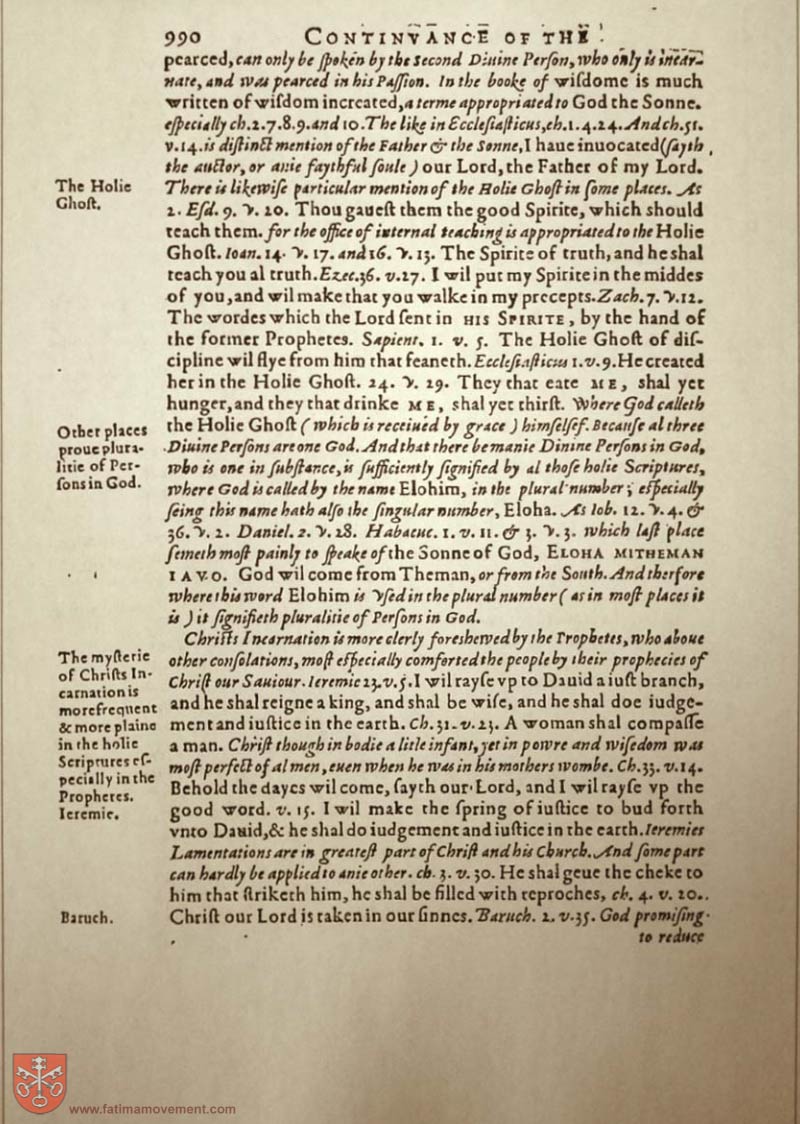 990 CONTINVANCE OF THE
pearced, can only be ſpoken by the Second Diuine Perſon, who only is incar-
nate, and was pearced in his Paſſion. In the booke of wiſdome is much
written of wiſdom increated, a terme appropriated to God the Sonne.
eſpecially ch.2.7.8.9. and 10. The like in Eccleſiaſticus, ch.1.4.24. And ch.51.
v.14. is diſtinct mention of the Father & the Sonne, I haue inuocated (ſayth
the auctor, or anie faythful ſoule) our Lord, the Father of my Lord.
The Holie
Ghoſt.
There is likewiſe particular mention of the Holie Ghoſt in ſome places. As
2. Eſd. 9. v. 20. Thou gaueſt them the good Spirite, which should
teach them. for the office of internal teaching is appropriated to the Holie
Ghoſt. Ioan. 14. v. 17. and 16. v. 13. The Spirite of truth, and he shal
teach you al truth. Ezec.36. v.27. I wil put my Spirite in the middes
of you, and wil make that you walke in my precepts. Zach.7. v.12.
The wordes which the Lord ſent in HIS SPIRITE, by the hand of
the former Prophetes. Sapient. 1. v. 5. The Holie Ghoſt of diſ-
cipline wil flye from him that feaneth. Eccleſiaſticus 1.v.9. He created
her in the Holie Ghoſt. 24. v. 29. They that eate ME, shal yet
hunger, and they that drinke ME, shal yet thirſt. Where God calleth
the Holie Ghoſt (which is receiued by grace) himſelſef. Becauſe al three
Other places
proue plura-
litie of Per-
ſons in God.
Diuine Perſons are one God. And that there be manie Dinine Perſons in God,
who is one in ſubſtance, is ſufficiently ſignified by al thoſe holie Scriptures,
where God is called by the name Elohim, in the plural number; eſpecially
ſeing this name hath alſo the ſingular number, Eloha. As Iob. 12. v. 4. &
36. v. 2. Daniel. 2. v. 28. Habacuc. 1. v. 11. & 3. v. 3. which laſt place
ſemeth moſt painly to ſpeake of the Sonne of God, ELOHA MITHEMAN
IAVO. God wil come from Theman, or from the South. And therfore
where this word Elohim is vſed in the plural number (as in moſt places it
is) it ſignifieth pluralitie of Perſons in God.
Chriſts Incarnation is more clerly foreshewed by the Prophetes, who aboue
The myſterie
of Chriſts In-
carnation is
more frequent
& more plaine
in the holie
Scriptures eſ-
pecially in the
Prophetes.
Ieremie.
other conſolations, moſt eſpecially comforted the people by their prophecies of
Chriſt our Sauiour. Ieremie 23.v.5. I wil rayſe vp to Dauid a iuſt branch,
and he shal reigne a king, and shal be wiſe, and he shal doe iudge-
ment and iuſtice in the earth. Ch.31.v.23. A woman shal compaſſe
a man. Chriſt though in bodie a litle infant, yet in powre and wiſedom was
moſt perfect of al men, euen when he was in his mothers wombe. Ch.33. v.14.
Behold the dayes wil come, ſayth our Lord, and I wil rayſe vp the
good word. v. 15. I wil make the ſpring of iuſtice to bud forth
vnto Dauid, & he shal do iudgement and iuſtice in the earth. Ieremies
Lamentations are in greateſt part of Chriſt and his Church. And ſome part
can hardly be applied to anie other. ch. 3. v. 30. He shal geue the cheke to
him that ſtriketh him, he shal be filled with reproches, ch. 4. v. 20.
Baruch.
Chriſt our Lord is taken in our ſinnes. Baruch. 2. v.35. God promiſing
to reduce
www.fatimamovement.com